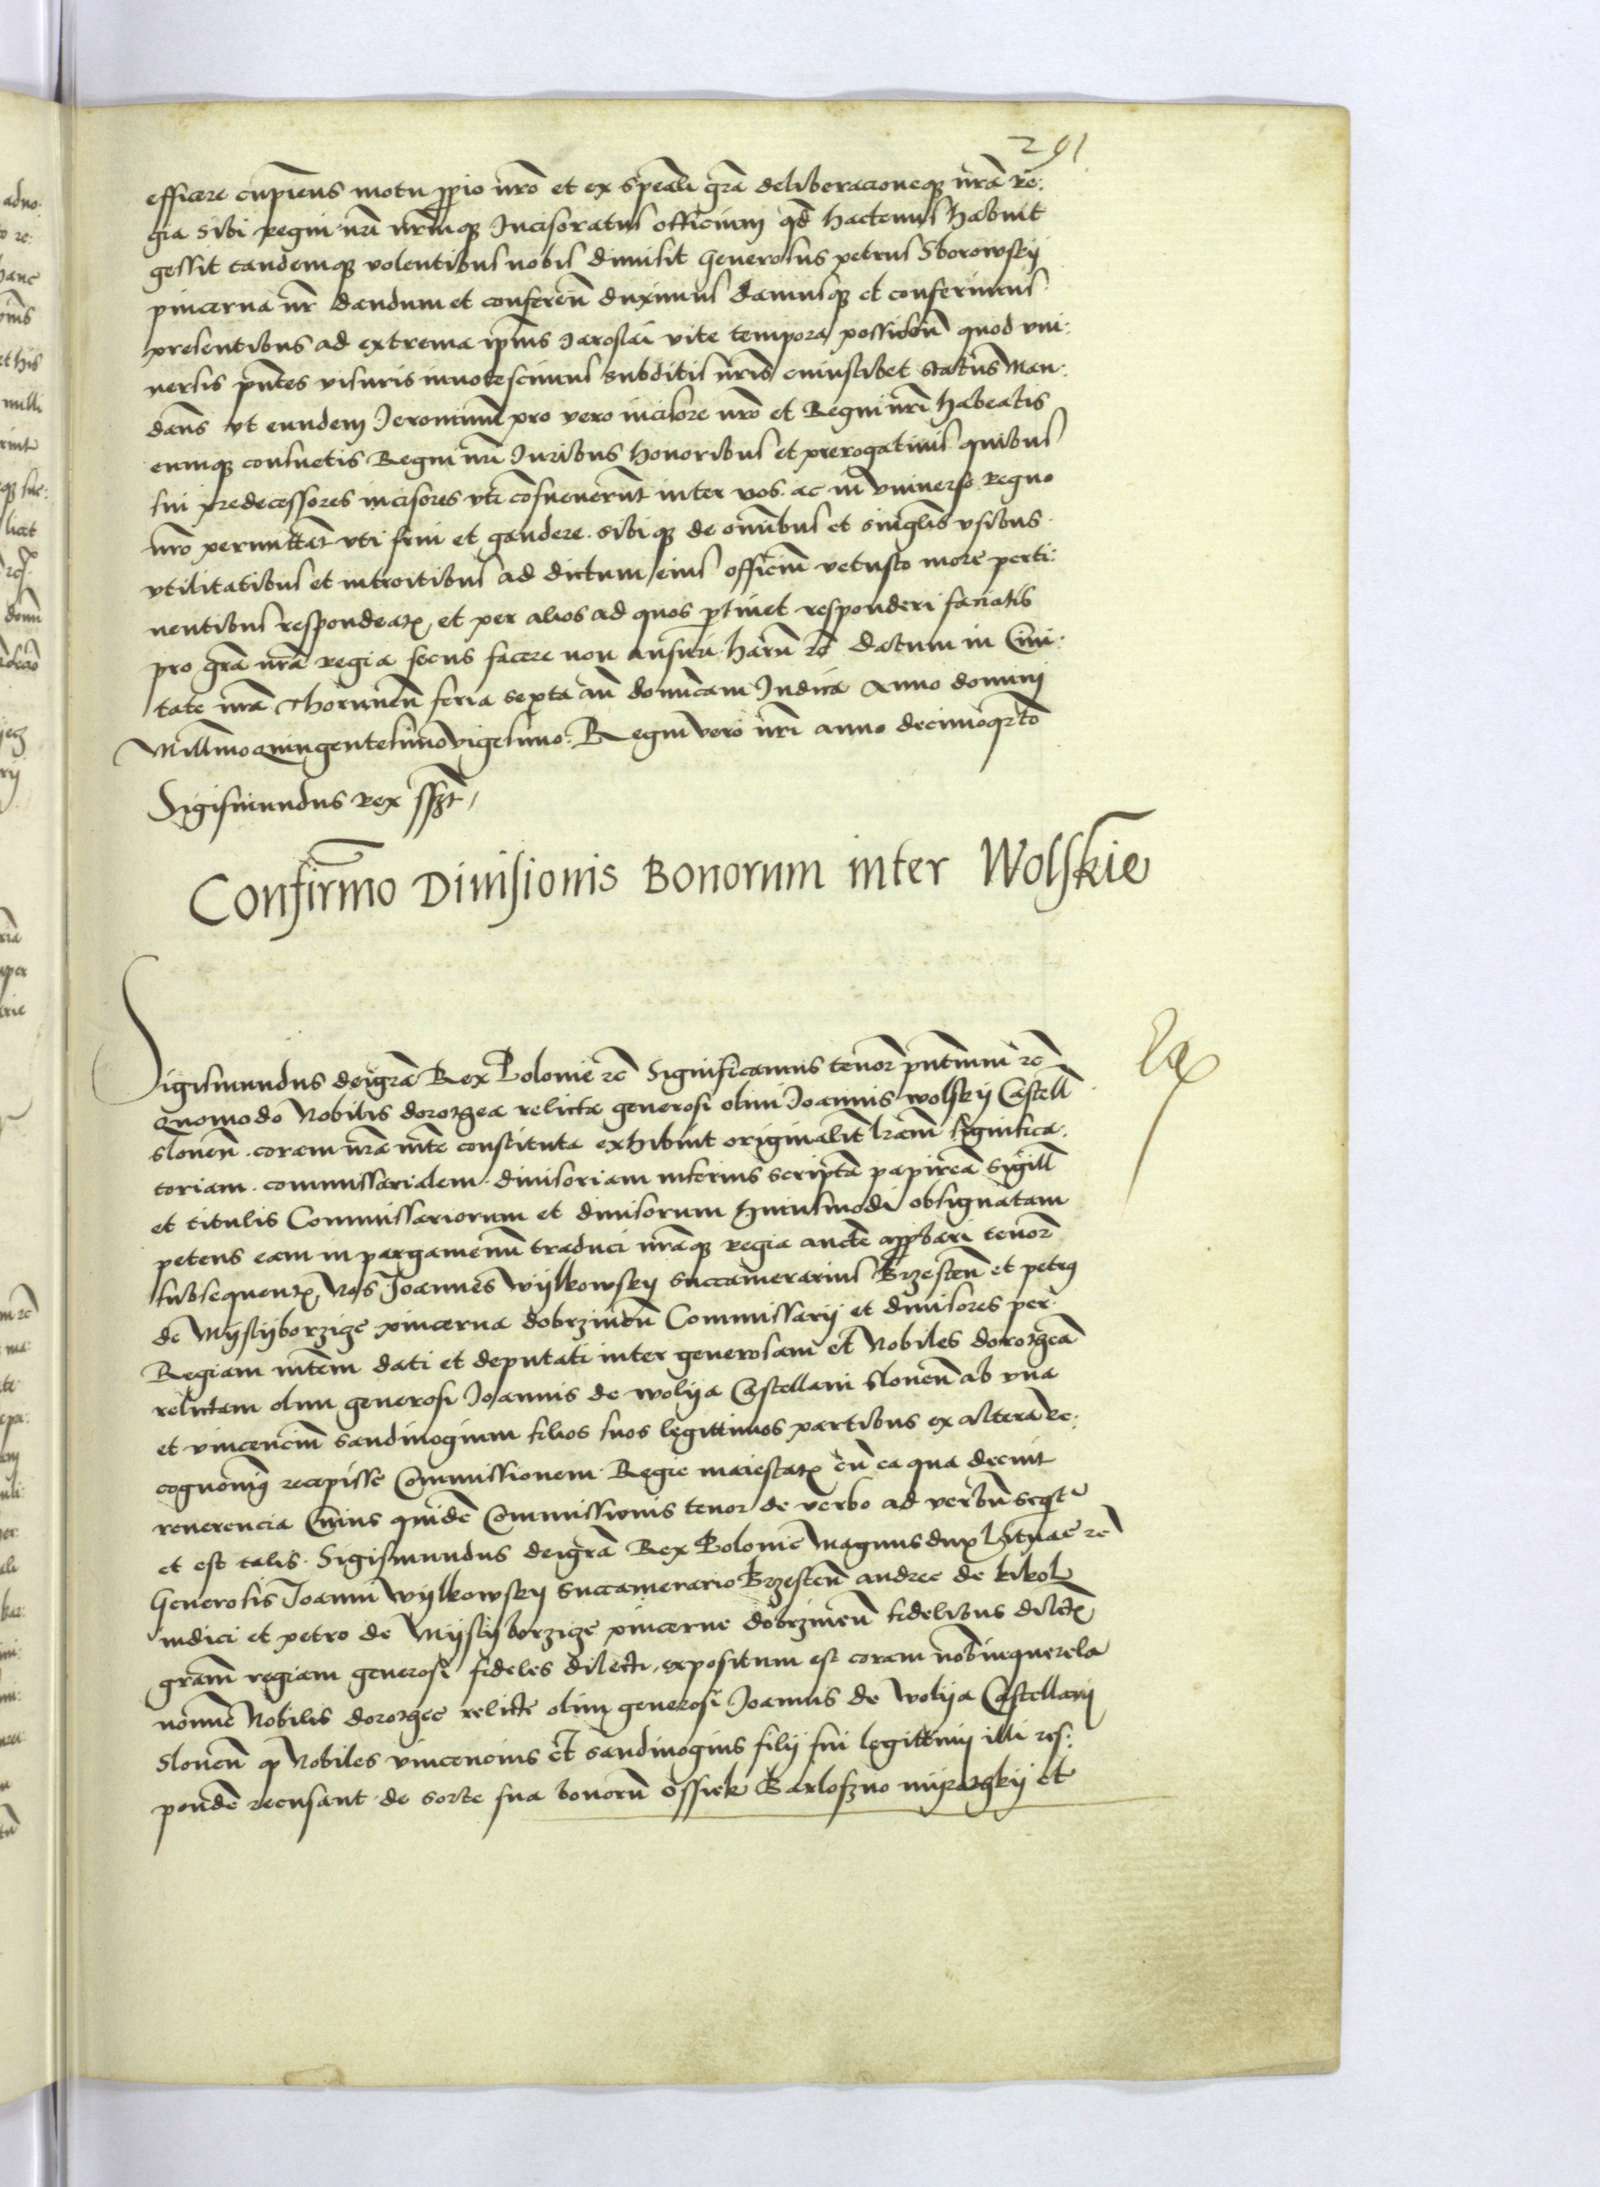 291
efficere cupiens motu pprio nro et ex speali gra deliberacioneq nra re:
gia sibi regni nri nrmq Incisoratus officium qd hactenus habuit
gessit tandemq volentibus nobis dimisit Generosus petrus Sborowskij
pincerna nr dandum et conferen duximus damusq et conferimus
presentibus ad extrema ipius Jaroslai vite tempora possiden quod vni:
uersis pntes visuris innotescimus subditis nris cuiuscibet status Man:
dans vt eundem Jeronimu pro vero incisore nro et Regni nri habeatis
eumq consuetis Regni nri Iuribus honoribus et prerogatiuis quibus
sui predecessores incisores vti cosueuerut inter vos ac in vniuerso Regno
nro permittat vti frui et gaudere. sibi q de omibus et singlis vsibus
vtilitatibus et introitibus ad dictum eius officiu vetusto more perti:
nentibus respondeatz et per alios ad quos ptinet responderi faciatis
pro gra nra regia secus facere non ausuri. haru rc datum in Ciui:
tate nra Thorunen feria sexta an domicam Iudica Anno domini
Millmo quingentesimo vigesimo. Regni vero nri anno decimoqrto
Sigismundus rex sszt
Confirmo Diuisionis Bonorum inter Wolskie
Sigismundus dei gra Rex Polonie rc Significamus tenor pntium rc
quomodo Nobilis dorothea relicta generosi olim Joannis wolskij Castell
slonen. coram nra mte constituta exhibuit originalit lram significa:
toriam. commissarialem. diuisoriam inferius scripta papirea sigill
et titulis Commissariorum et diuisorum huiusmodi obsignatam
petens eam in pargamenu traduci nraq regia aucte appbari tenor
subsequentz Nos Joannes wijlkowskij succamerarius Brzesten et petrus
de Mijstijborzize pincerna dobrzinen Commissarij et diuisores per
Regiam mtem dati et deputati inter generosam et Nobiles dorothea
relictam olim generosi Joannis de wolija Castellani slonen ab vna
et vincenciu Sandiuogium filios suos legittimos partibus ex altera re:
cognom recepisse Commissionem Regie maiestatz cu ea qua decuit
reuerencia Cuius quide Commissionis tenor de verbo ad verbu seqt
et est talis. Sigismundus dei gra Rex Polonie Magnus dux Lytuae rc
Generosis Joanni wijlkowskij succamerario Brzesten andree de kikol
iudici et petro de Mijstijborzize pincerne dobrzinen fidelibus dilctis
gram regiam generosi fideles dilecti. expositum est coram nob in querela
nomine Nobilis dorothee relicte olim generosi Joannis de wolija Castellani
slonen q Nobiles vincencius et sandiuogius filij sui legittimi illi res:
ponde recusant de sorte sua bonoru Ossiek Barloszno mijrotzkij et